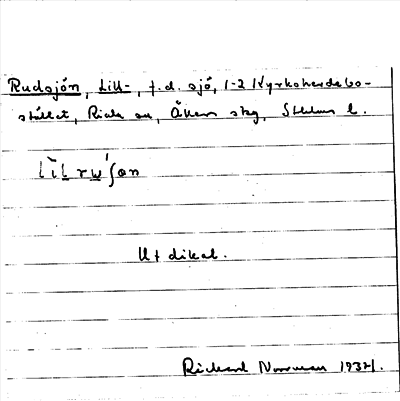 Rudsjön, Lill-, f.d. sjö, 1-2 Kyrkoherdebo-
stället, Riala sn, Åkers skg, Sthlms l.
Utdikad.
Rickard Norrman 1932.